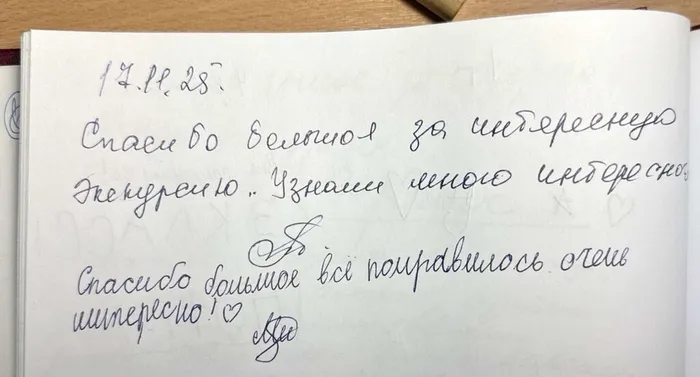 17.11.25.
Спасибо большое за интересную
экскурсию.. Узнали много интересного
Спасибо большое всё понравилось очень
интересно! ♡